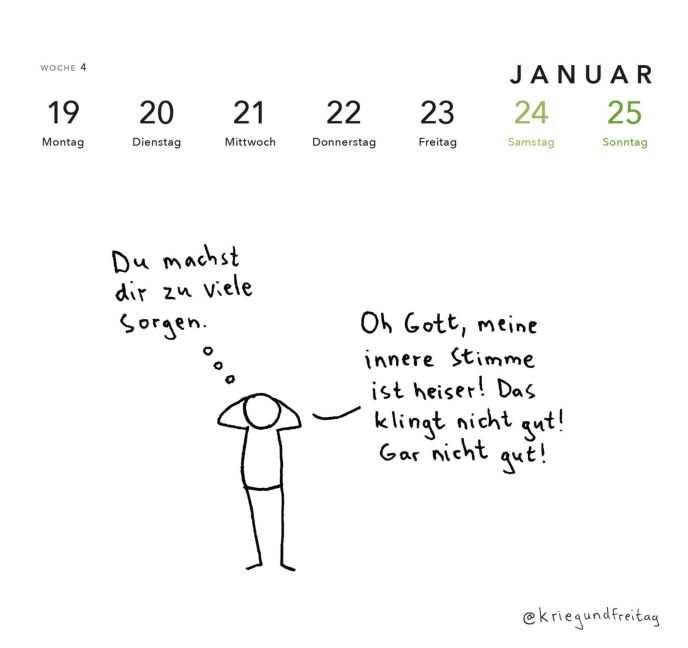 WOCHE 4
JANUAR
19 20 21 22 23 24 25
Montag Dienstag Mittwoch Donnerstag Freitag Samstag Sonntag
Du machst
dir zu viele
Sorgen.
Oh Gott, meine
innere Stimme
ist heiser! Das
klingt nicht gut!
Gar nicht gut!
@kriegundfreitag